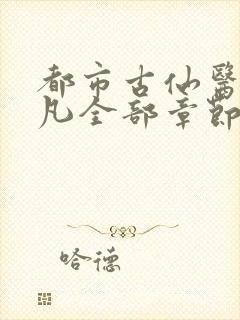 都市古仙醫
凡全部章節
哈德